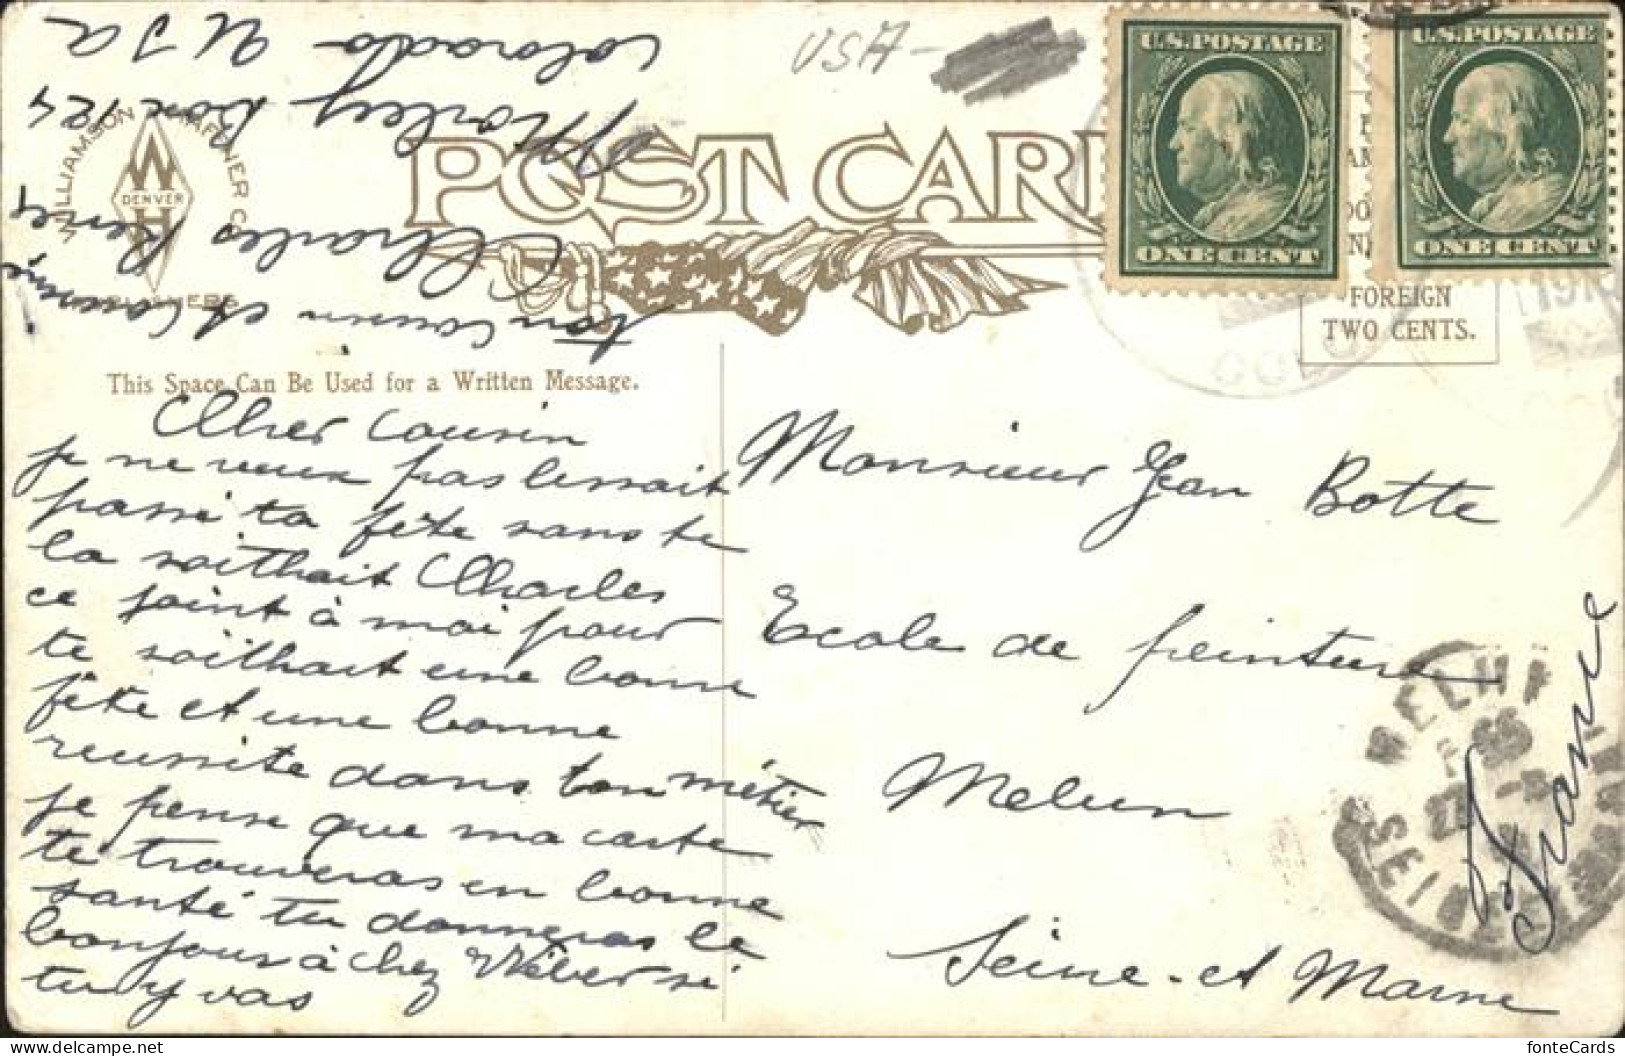 USA -
POST CARD
WILLIAMSON HAFFNER CO.
W
DENVER
H
U.S. POSTAGE
ONE CENT
U.S. POSTAGE
ONE CENT
FOREIGN
TWO CENTS.
COLO
191
This Space Can Be Used for a Written Message.
Cher Cousin
je ne veux pas lessait
passé ta fête sans te
la soithait Charles
ce joint à moi pour
te soithait une bonne
fête et une bonne
reussite dans ton métier
je pense que ma carte
te trouveras en bonne
santé tu donneras le
bonjour à chez Wéber si
tu y vas
ton cousin et cousine
Charles Renée
Morley Box 124
Colorado U S A
Monsieur Jean Botte
Ecole de peinture
Melun
Seine-et Marne
France
MELUN
SEINE
fonteCards